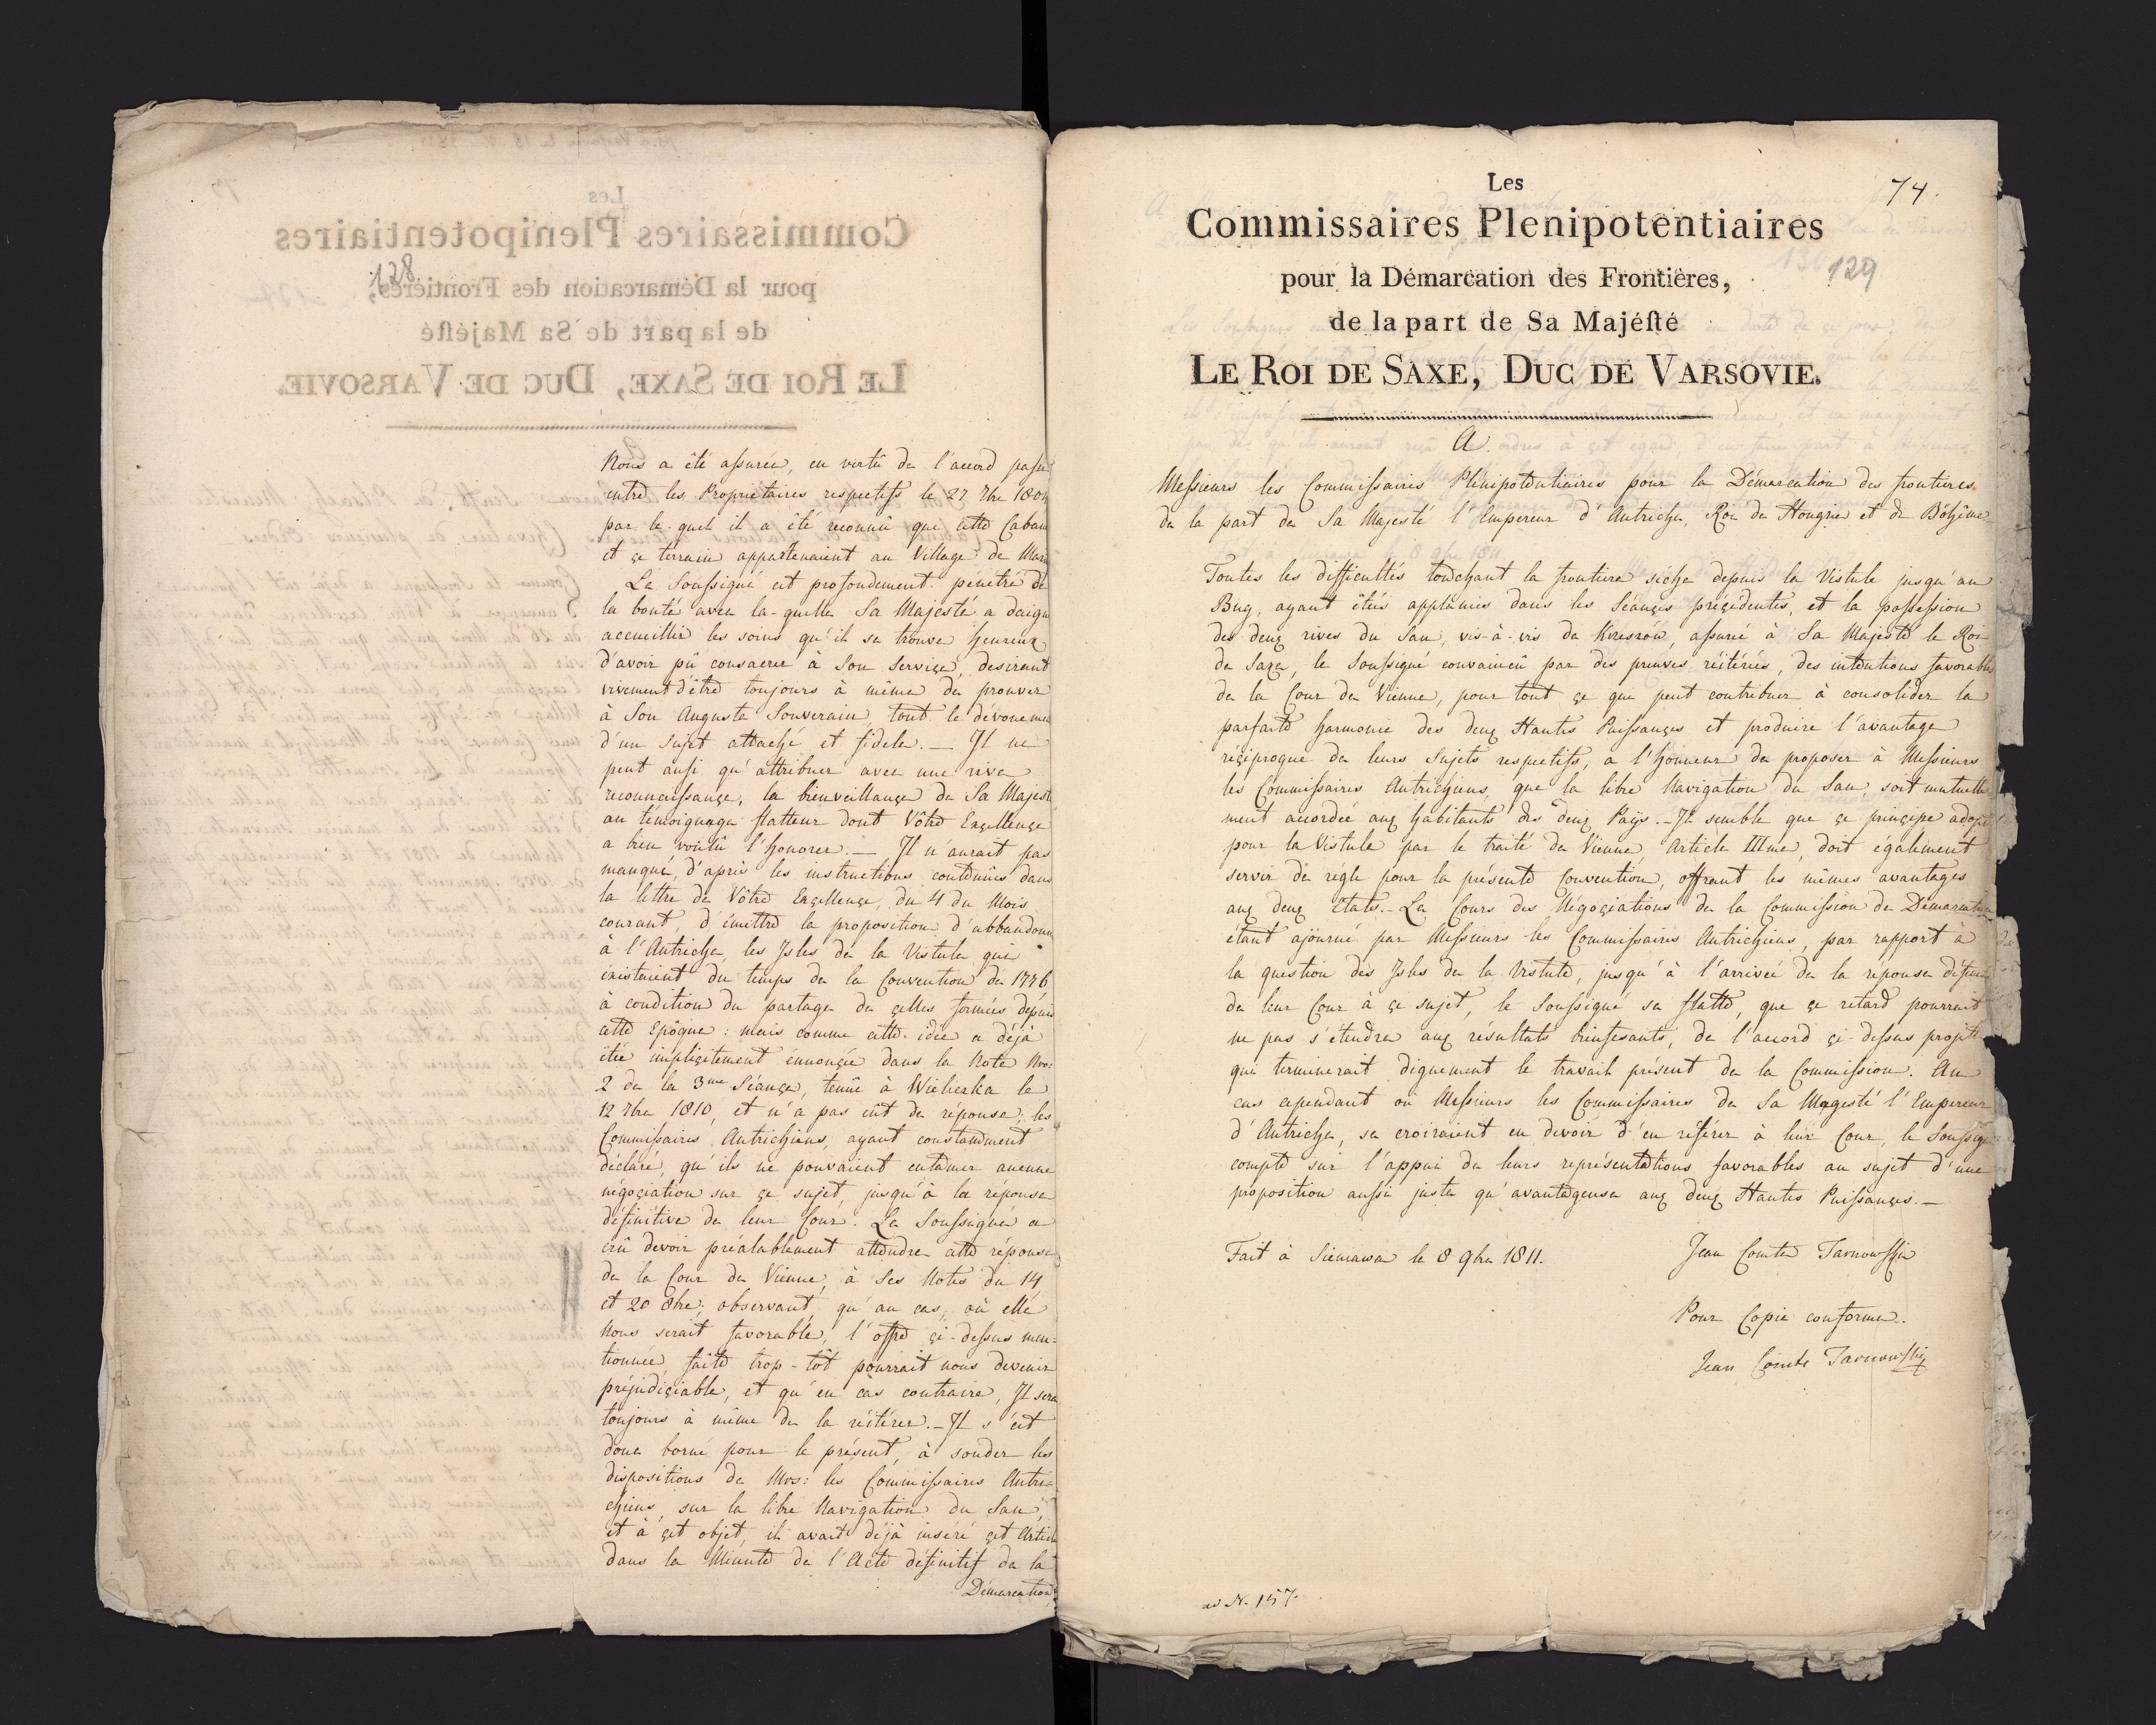 128
Nous a été assurée, en vertû de l'accord passé
entre les Propriétaires respectifs le 27 7bre 1804
par le-quel il a été reconnû que cette Caban
et çe terrain appartenaient au Village de
Le Soussigné est profondement pénétré de
la bonté avec la-quelle Sa Majesté a daigné
accueillir les soins qu'il se trouve heureux
d'avoir pû consacrer à Son Serviçe, desirant
vivement d'être toujours à même de prouver
à Son Auguste Souverain, tout le dévouemen
d'un Sujet attaché et fidele. — Il ne
peut aussi qu'attribuer avec une vive
reconnaissançe, la bienveillançe de Sa Majesté
au témoignage flatteur dont Vôtre Exçellençe
a bien voulû l'honorer. — Il n'aurait pas
manqué, d'après les instructions contenües dans
la lettre de Vôtre Exçellençe, du 4 du Mois
courant, d'émettre la proposition d'abbandonn
à l'Autriche, les Isles de la Vistule qui
existaient du temps de la Convention de 1776
à condition du partage de çelles formées dépuis
cette Epôque: mais comme cette idée a déjà
étée impliçitement énnonçée dans la Note Nro:
2 de la 3me Séançe, tenüe à Wieliczka le
12 7bre 1810, et n'a pas eût de réponse; les
Commissaires Autrichiens, ayant constamment
déclaré, qu'ils ne pouvaient entamer aucune
négoçiation sur çe sujet, jusqu'à la réponse
définitive de leur Cour. Le Soussigné a
crû devoir préalablement attendre cette réponse
de la Cour de Vienne, à Ses Notes du 14
et 20 8bre; observant, qu'au cas, où elle
Nous serait favorable, l'offre çi-dessus men=
tionnée, faite trop-tôt pourrait nous devenir
préjudiçiable, et qu'en cas contraire, Il sera
toujours à même de la réitérer. — Il s'est
donc borné pour le présent, à sonder les
dispositions de Mrs: les Commissaires Autri=
chiens, sur la libre Navigation du San,
et à çet objet, il avait déjà inséré çet Article
dans la Minute de l'Acte définitif de la
Démarcation
74.
Les
Commissaires Plenipotentiaires
129
pour la Démarcation des Frontières,
de la part de Sa Majésté
LE ROI DE SAXE, DUC DE VARSOVIE.
A
Messieurs les Commissaires Plénipotentiaires pour la Démarcation des frontières
de la part de Sa Majesté l'Empereur d'Autriche, Roi de Hongrie et de Böhème
Toutes les difficultés touchant la frontière sèche depuis la Vistule jusqu'au
Bug, ayant étées applanies dans les Séançes préçédentes, et la possession
des deux rives du San, vis-à-vis de assurée à Sa Majesté le Roi
de Saxe, le Soussigné convaincû par des preuves réitérées, des intentions favorables
de la Cour de Vienne, pour tout çe que peut contribuer à consolider la
parfaite harmonie des deux Hautes Puissançes et produire l'avantage
réçiproque de leurs Sujets respectifs, a l'honneur de proposer à Messieurs
les Commissaires Autrichiens, que la libre Navigation du San, soit mutuelle=
ment accordée aux habitants des deux Païs. — Il semble que çe prinçipe adopté
pour la Vistule par le traité de Vienne Article IIIme, doit également
servir de régle pour la présente Convention, offrant les mêmes avantages
aux deux Etats. — Le Cours des Négoçiations de la Commission de Démarcation
étant ajourné par Messieurs les Commissaires Autrichiens, par rapport à
la question des Isles de la Vistule, jusqu'à l'arrivée de la reponse
de leur Cour à çe sujet, le Soussigné se flatte, que çe retard pourrait
ne pas s'étendre aux résultats bienfesants, de l'accord çi-dessus projeté
qui terminerait dignement le travail présent de la Commission. Au
cas cependant où Messieurs les Commissaires de Sa Magesté l'Empereur
d'Autriche, se croiraient en devoir d'en référer à leur Cour, le Soussigné
compte sur l'appui de leurs représentations favorables au sujet d'une
proposition aussi juste qu'avantageuse aux deux Hautes Puissançes. —
Fait à Sieniawa le 8 9bre 1811.
Jean Comte Tarnowski
Pour Copie conforme.
Jean Comte Tarnowski
ad N. 157.